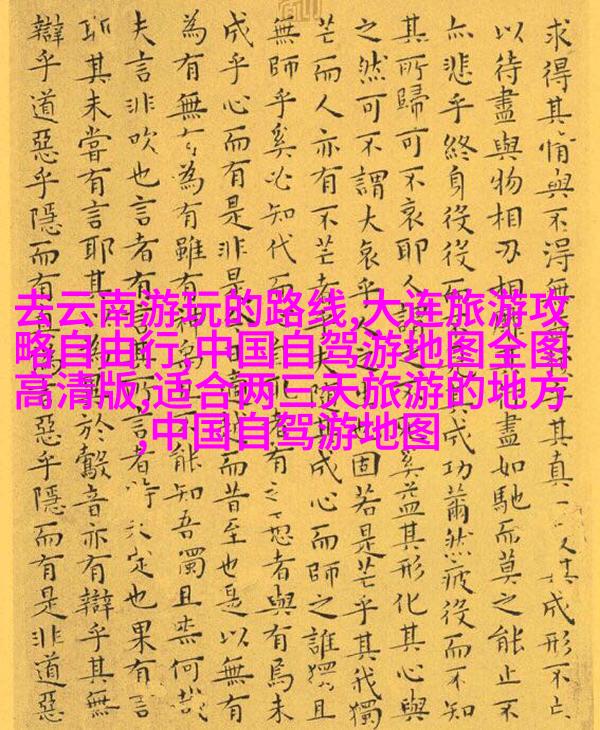 求得其情與不得無乎其真一其成形不亡
以待盡與物相刃相盡如馳而莫之能止不
亦悲乎終身役役而成功薾然疲役而不知
其所歸可不哀耶人謂之奚益其形化其心與
之然可不謂大哀乎人之也固若是芒乎其我獨
芒而人亦有不芒者乎隨其成心而師之誰獨且
無師乎奚必知代而取者有之愚者與有焉未
成乎心而有是非是而昔至也是以無有
為有無有為有雖有神禹不能知吾獨且柰何哉
夫言非吹也言者有言其所言者特未定也果有言
耶其未嘗有言耶其為於鷇音亦有辯乎其無
辯乎道惡乎隱而有惡乎隱而有是非道惡
去云南游玩的路线,大连旅游攻
略自由行,中国自驾游地图全图
高清版,适合两三天旅游的地方
,中国自驾游地图